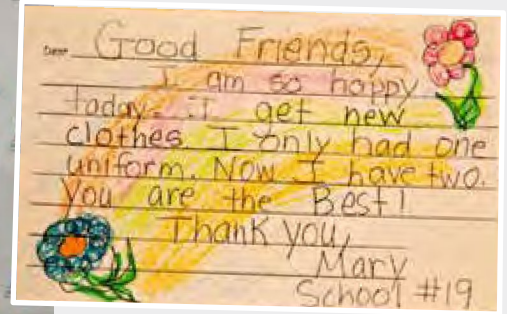 Dear Good Friends,
I am so happy
today. I get new
clothes. I only had one
uniform. Now I have two.
You are the Best!
Thank you,
Mary
School #19